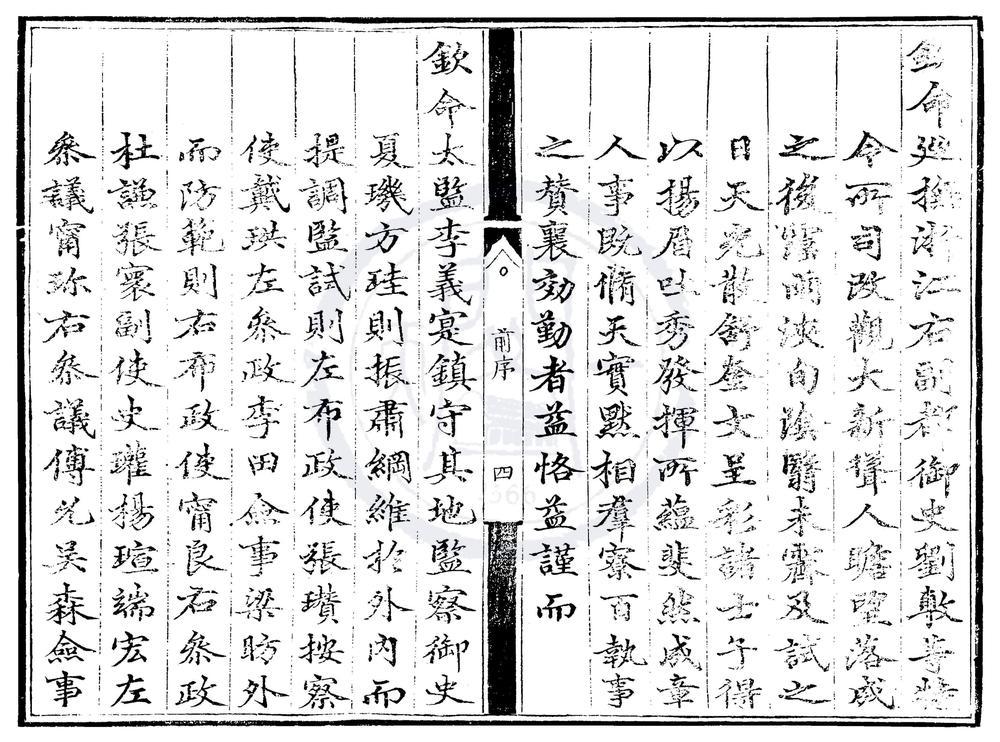 欽命巡撫浙江右副都御史劉敷等特
令所司改觀大新聳人瞻望落成
之後霪雨浹旬陰翳未霽及試之
日天光散舒奎文呈彩諸士子得
以揚眉吐秀發揮所蘊斐然成章
人事既脩天實黙相羣寮百執事
之贊襄効勤者益恪益謹而
前序
四
欽命太監李義寔鎮守其地監察御史
夏璣方珪則振肅綱維扵外内而
提調監試則左布政使張瓚按察
使戴珙左叅政李田僉事梁昉外
而防範則右布政使甯良右叅政
杜謙張寰副使史瓘楊瑄端宏左
叅議甯珎右叅議傅允吴森僉事